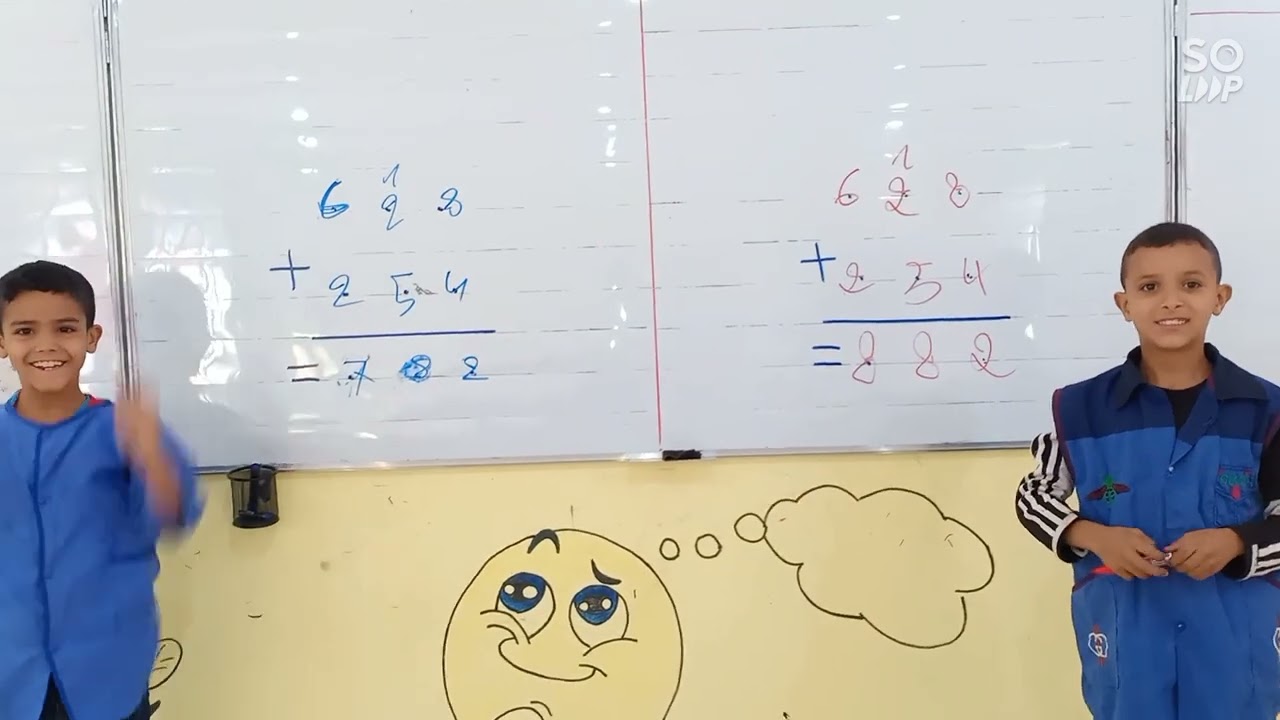 1
6 2 8
+ 2 5 4
= 7 8 2
1
6 2 8
+ 2 5 4
= 8 8 2
SO
LOOP